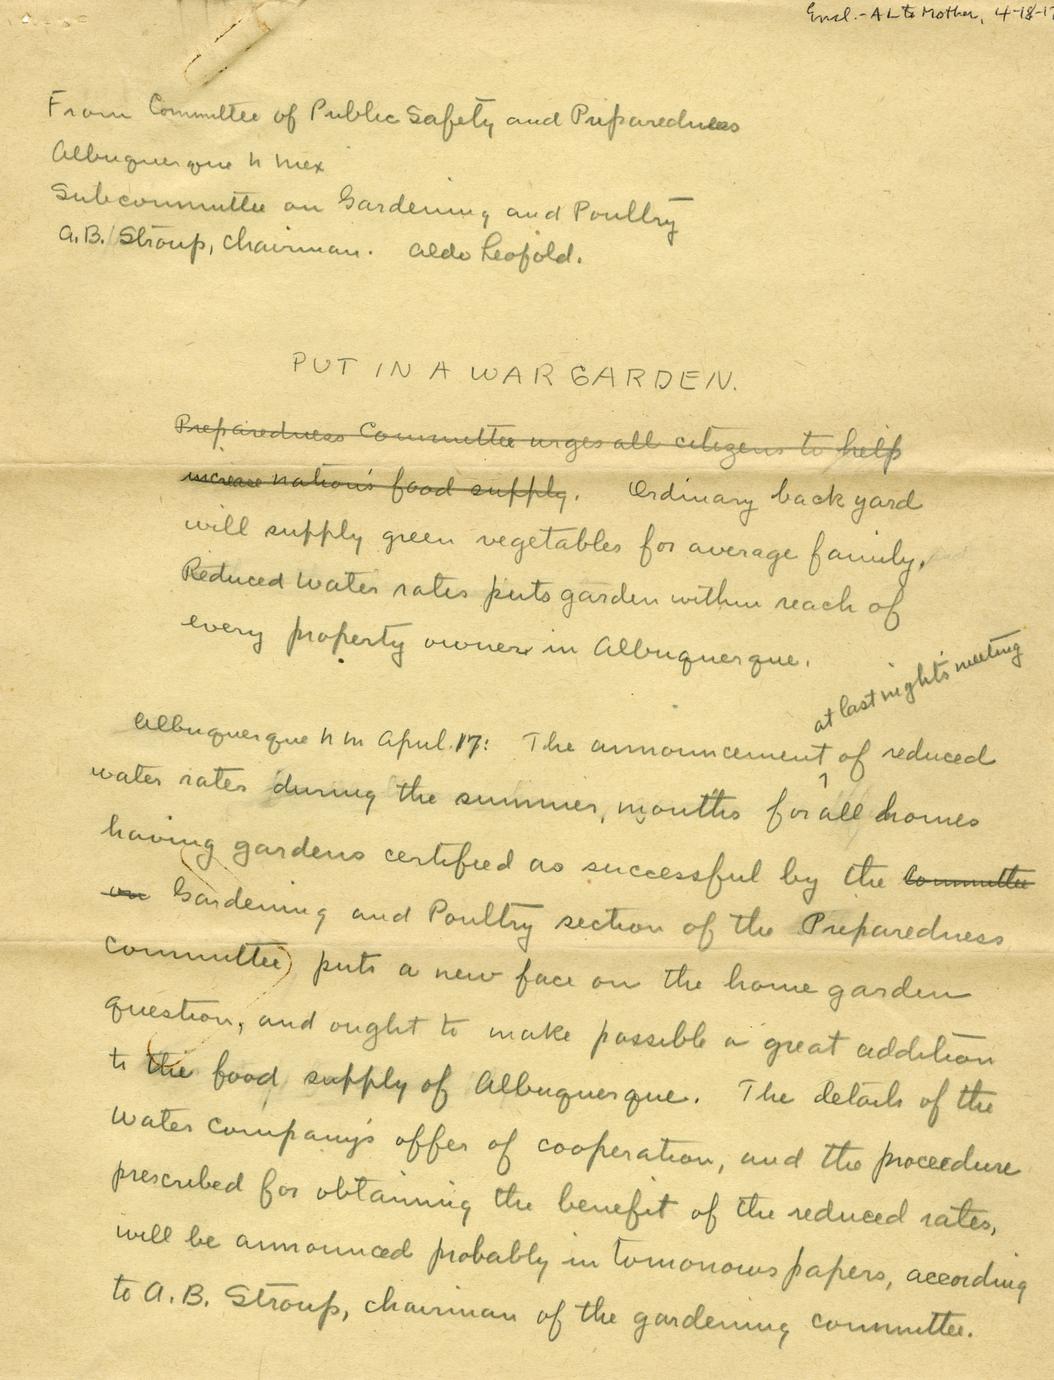 Encl. - AL to Mother, 4-18-17
From Committee of Public Safety and Preparedness
Albuquerque N Mex
Subcommittee on Gardening and Poultry
A.B. Stroup, Chairman. Aldo Leopold.
PUT IN A WAR GARDEN.
Preparedness Committee urges all citizens to help
increase nation's food supply. Ordinary back yard
will supply green vegetables for average family.
Reduced water rates puts garden within reach of
every property owner in Albuquerque.
at last night's meeting
Albuquerque N M April 17: The announcement of reduced
water rates during the summer months for all homes
having gardens certified as successful by the Committee
on Gardening and Poultry section of the Preparedness
Committee) puts a new face on the home garden
question, and ought to make possible a great addition
to the food supply of Albuquerque. The details of the
Water Company's offer of cooperation, and the proceedure
prescribed for obtaining the benefit of the reduced rates,
will be announced probably in tomorrows papers, according
to A.B. Stroup, chairman of the gardening committee.